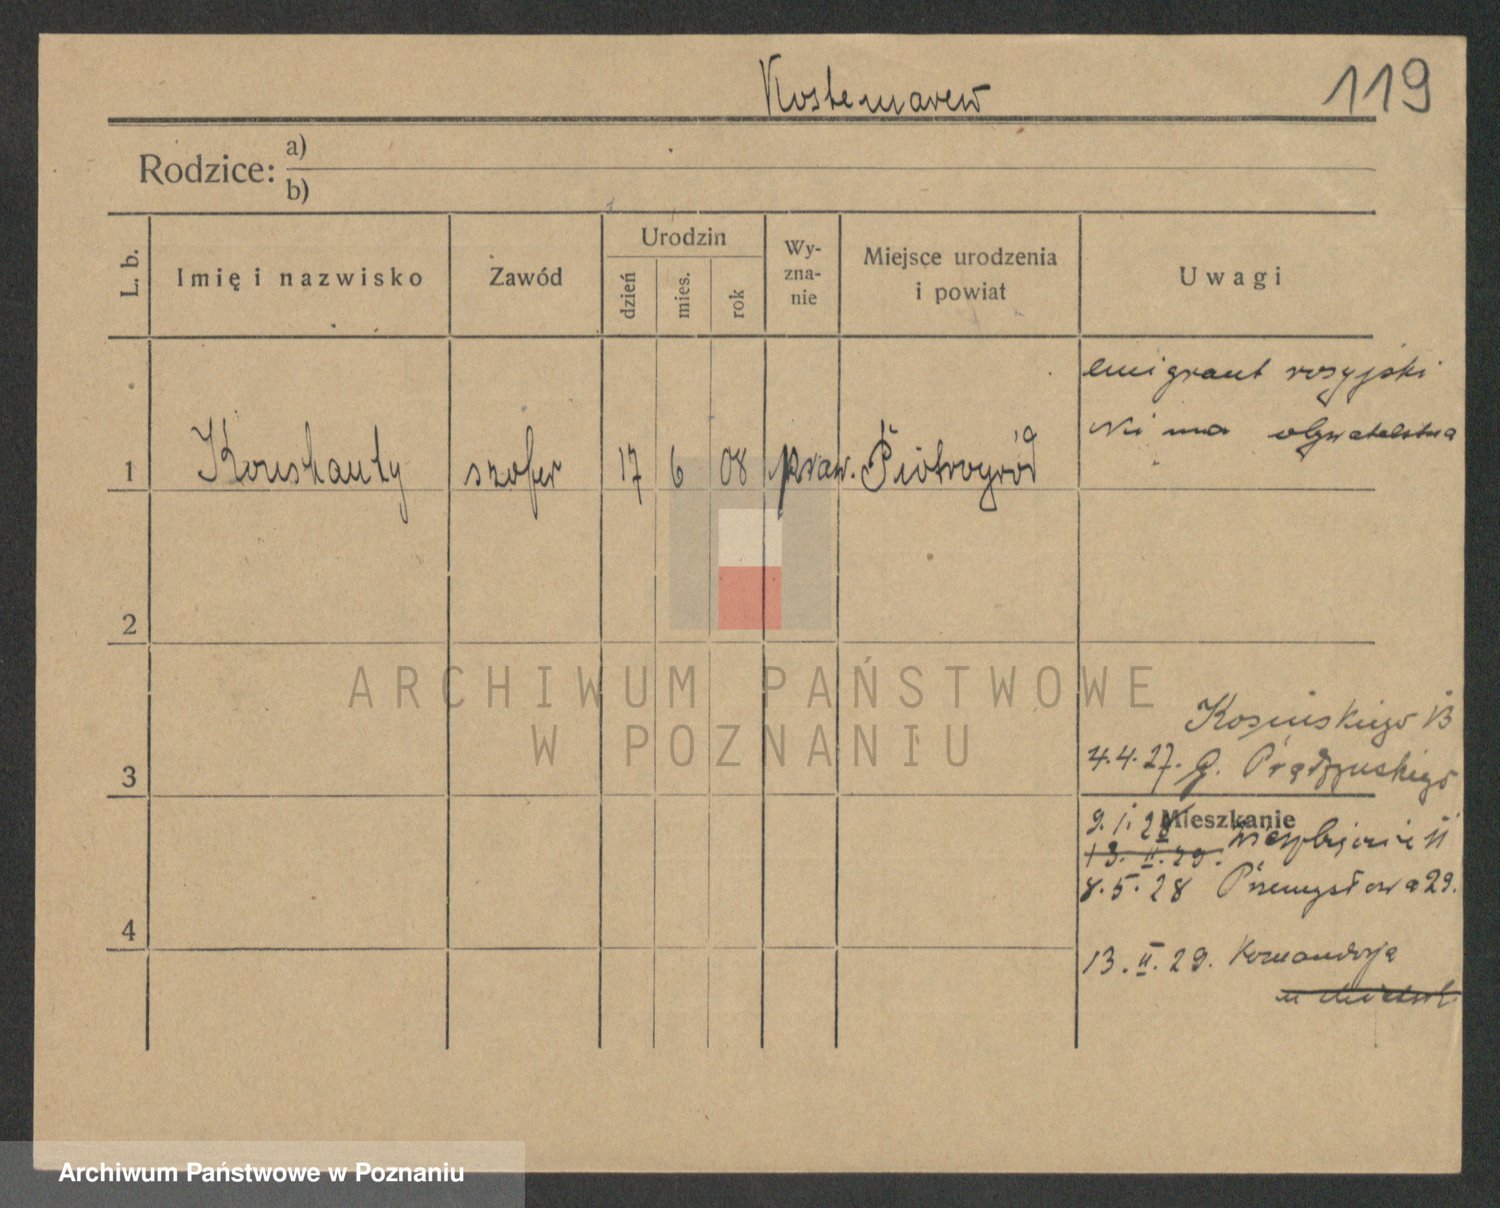 Kostemarew
119
Rodzice:
a)
b)
L. b.
Imię i nazwisko
Zawód
Urodzin
dzień
mies.
rok
Wy-
zna-
nie
Miejsce urodzenia
i powiat
Uwagi
emigrant rosyjski
Ni ma obywatelstwa
1
Konstanty
szofer
17
6
08
praw.
Piotrogród
2
3
4
Kosińskiego 13
4.4.27. G. Prądzyńskiego
Mieszkanie
9.1.28
13.II.29.
8.5.28 Przemysłowa 29.
13.II.29. Komandorja
ARCHIWUM PAŃSTWOWE
W POZNANIU
Archiwum Państwowe w Poznaniu